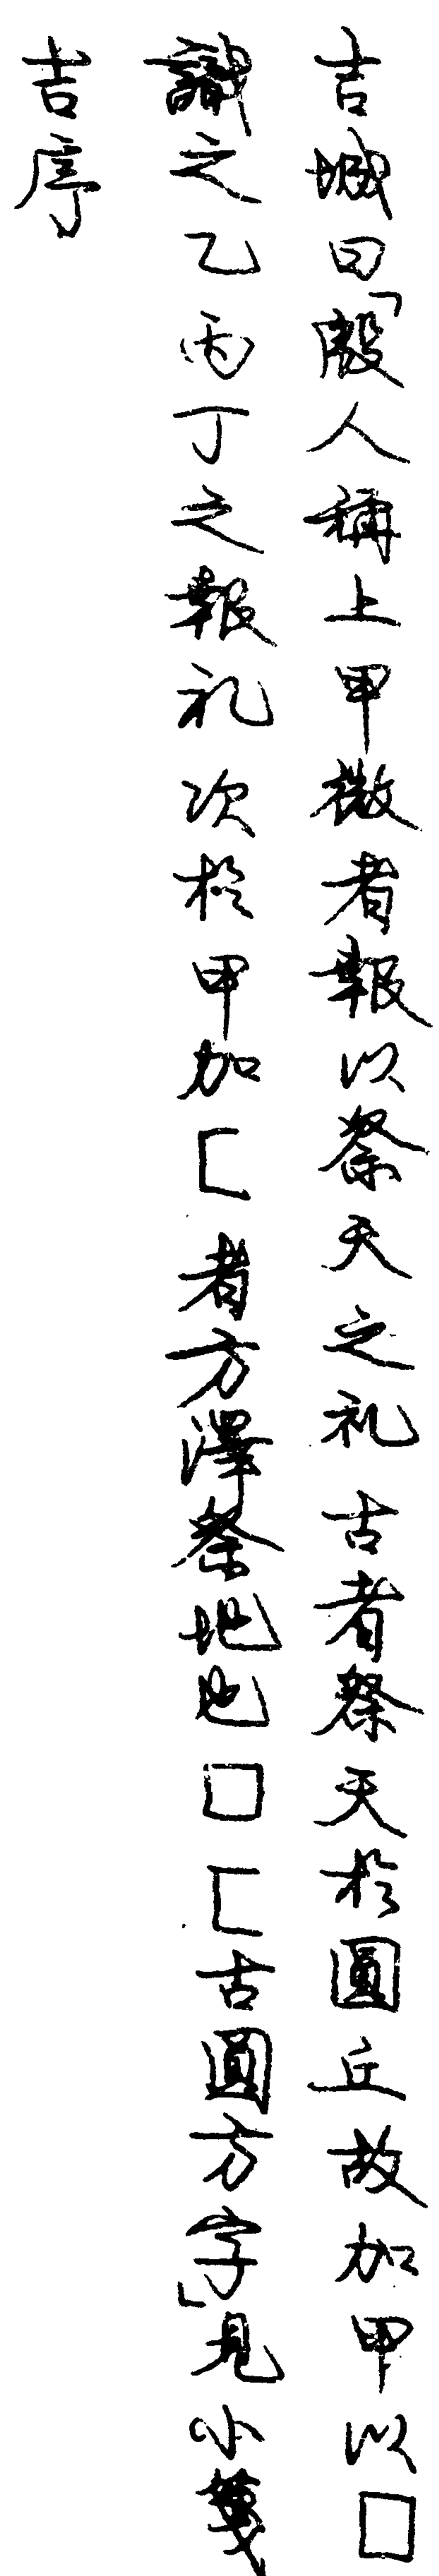 吉城曰「殷人稱上甲微者報以祭天之礼古者祭天於圓丘故加甲以囗
識之乙丙丁之報礼次於甲加匚者方澤祭地也囗匚古圓方字」見小箋
吉序